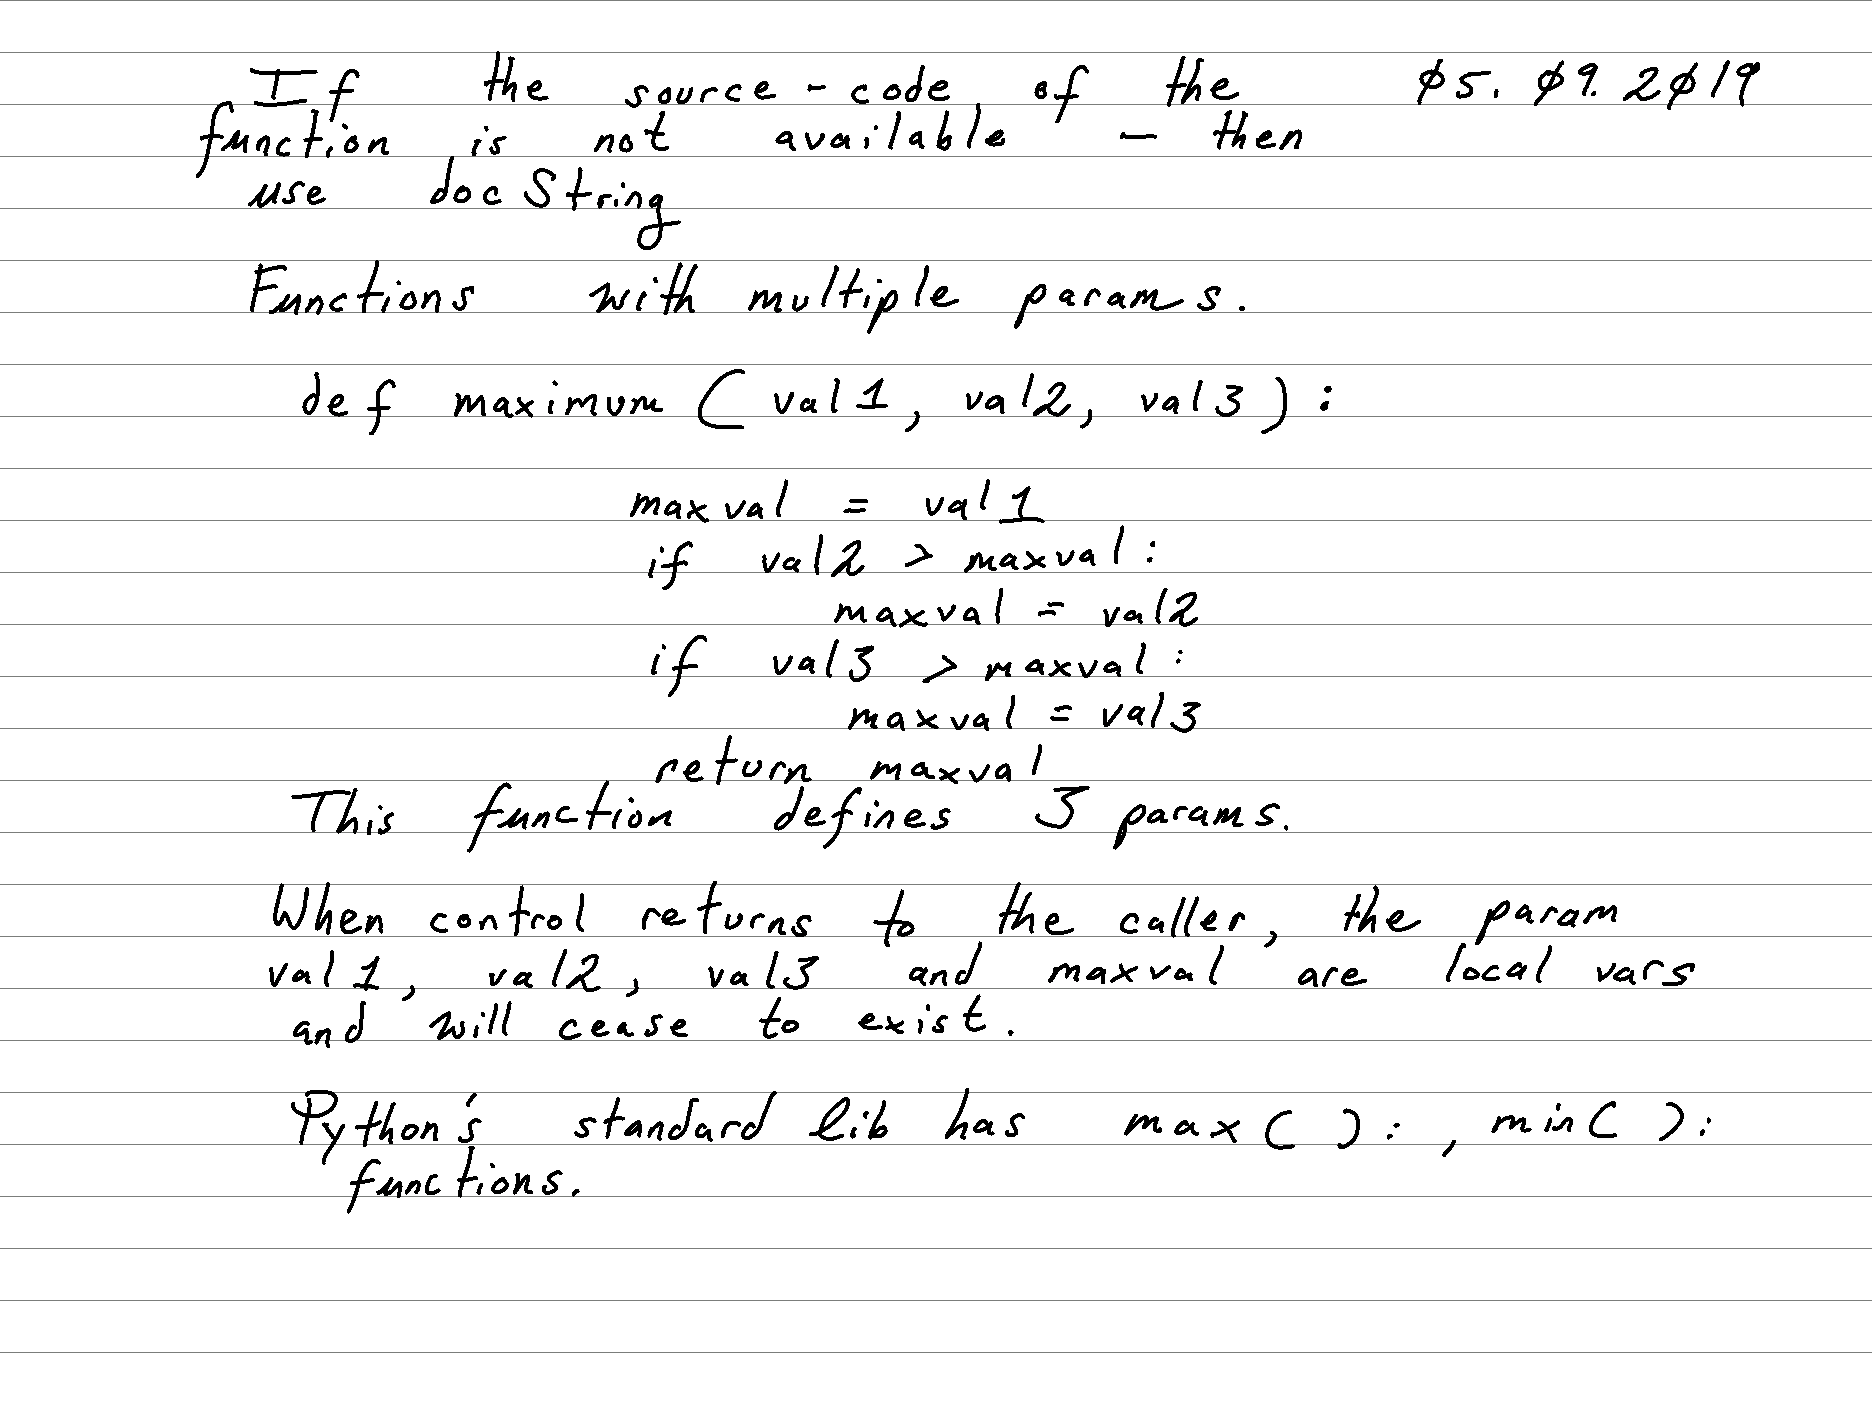 If the source-code of the 05.09.2019
function is not available - then
use docString
Functions with multiple params.
def maximum ( val1, val2, val3 ) :
maxval = val1
if val2 > maxval :
maxval = val2
if val3 > maxval :
maxval = val3
return maxval
This function defines 3 params.
When control returns to the caller, the param
val1, val2, val3 and maxval are local vars
and will cease to exist.
Python's standard lib has max( ): , min( ):
functions.